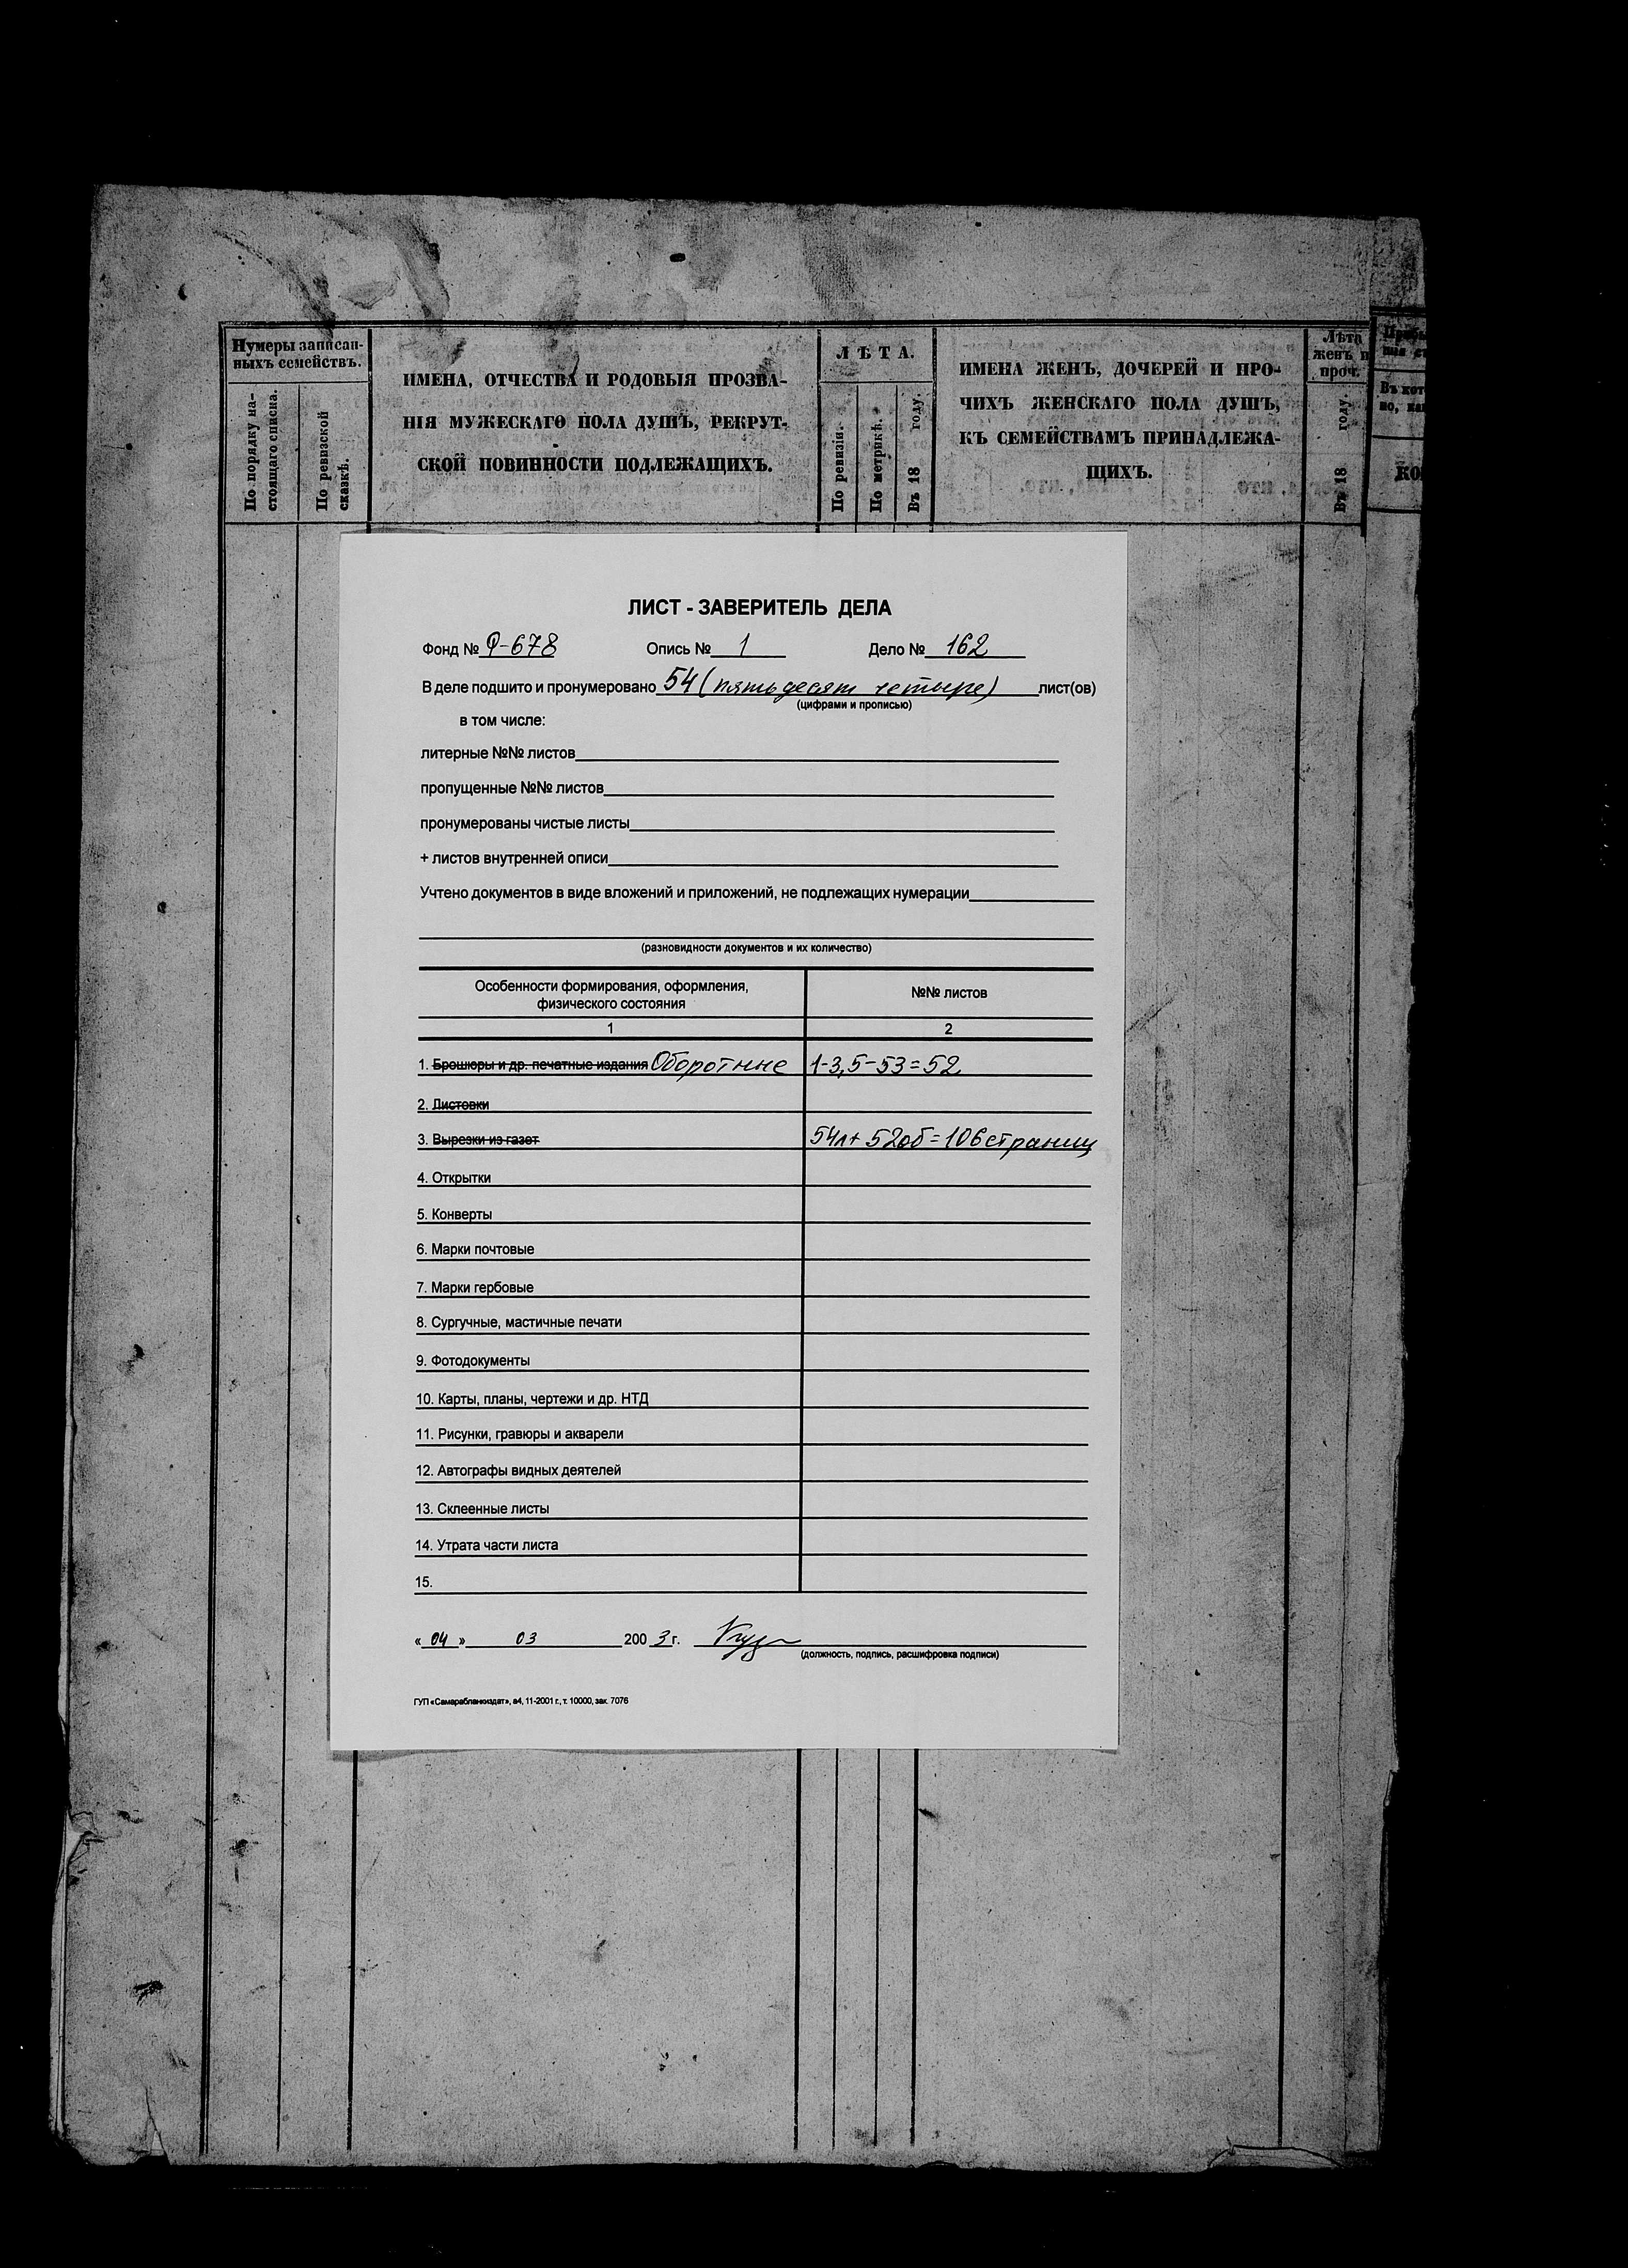 Нумеры записан-
ныхъ семействъ.
По порядку на-
стоящаго списка.
По ревизской
сказкѣ.
ИМЕНА, ОТЧЕСТВА И РОДОВЫЯ ПРОЗВА-
НІЯ МУЖЕСКАГО ПОЛА ДУШЪ, РЕКРУТ-
СКОЙ ПОВИННОСТИ ПОДЛЕЖАЩИХЪ.
ЛѢТА.
По ревизіи.
По метрикѣ.
Въ 18 году.
ИМЕНА ЖЕНЪ, ДОЧЕРЕЙ И ПРО-
ЧИХЪ ЖЕНСКАГО ПОЛА ДУШЪ,
КЪ СЕМЕЙСТВАМЪ ПРИНАДЛЕЖА-
ЩИХЪ.
Лѣта
женъ и
проч.
Въ 18 году.
ЛИСТ - ЗАВЕРИТЕЛЬ ДЕЛА
Фонд № Ф-678 Опись № 1 Дело № 162
В деле подшито и пронумеровано 54 (пятьдесят четыре) лист(ов)
(цифрами и прописью)
в том числе:
литерные №№ листов
пропущенные №№ листов
пронумерованы чистые листы
+ листов внутренней описи
Учтено документов в виде вложений и приложений, не подлежащих нумерации
(разновидности документов и их количество)
Особенности формирования, оформления,
физического состояния
№№ листов
1 2
1. Брошюры и др. печатные издания Оборотные 1-3,5-53=52
2. Листовки
3. Вырезки из газет 54л+52об=106страниц
4. Открытки
5. Конверты
6. Марки почтовые
7. Марки гербовые
8. Сургучные, мастичные печати
9. Фотодокументы
10. Карты, планы, чертежи и др. НТД
11. Рисунки, гравюры и акварели
12. Автографы видных деятелей
13. Склеенные листы
14. Утрата части листа
15.
« 04 » 03 200 3 г.
(должность, подпись, расшифровка подписи)
ГУП «Самарабланкиздат», а4, 11-2001 г., т. 10000, зак. 7076